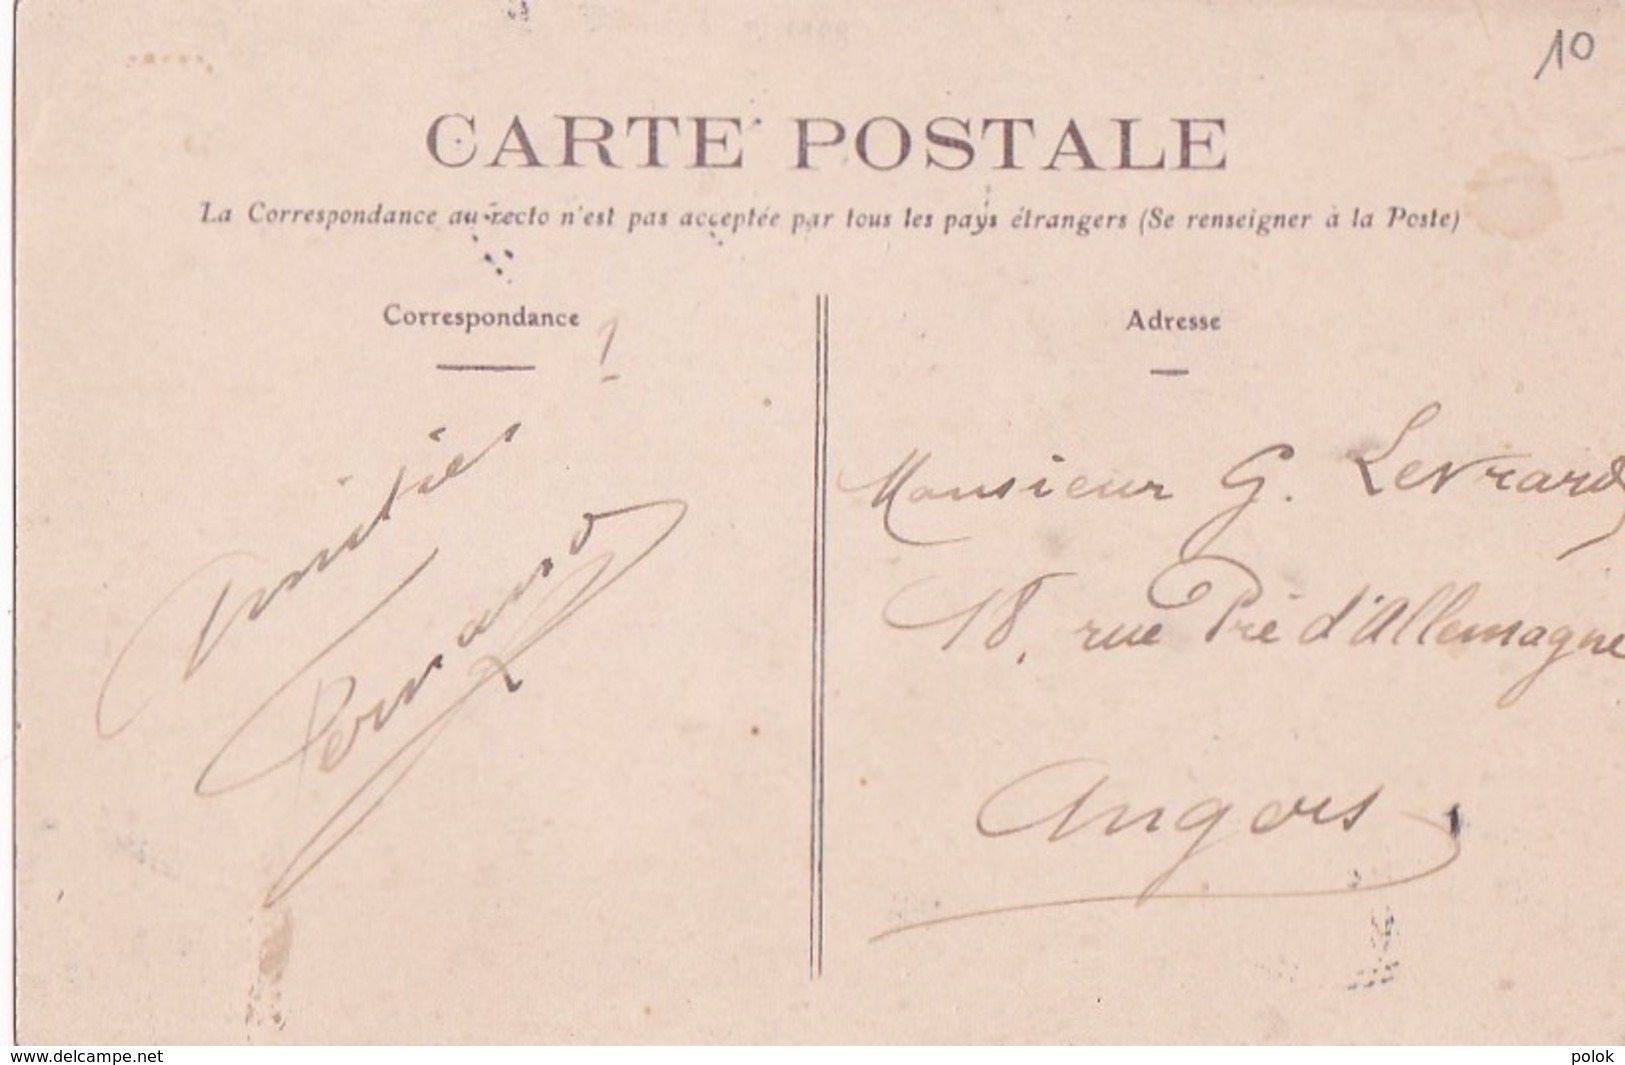 10
CARTE POSTALE
La Correspondance au recto n'est pas acceptée par tous les pays étrangers (Se renseigner à la Poste)
Correspondance
Amitiés
Adresse
Monsieur G. Levrard
18, rue Pré d'Allemagne
Angers
www.delcampe.net
polok